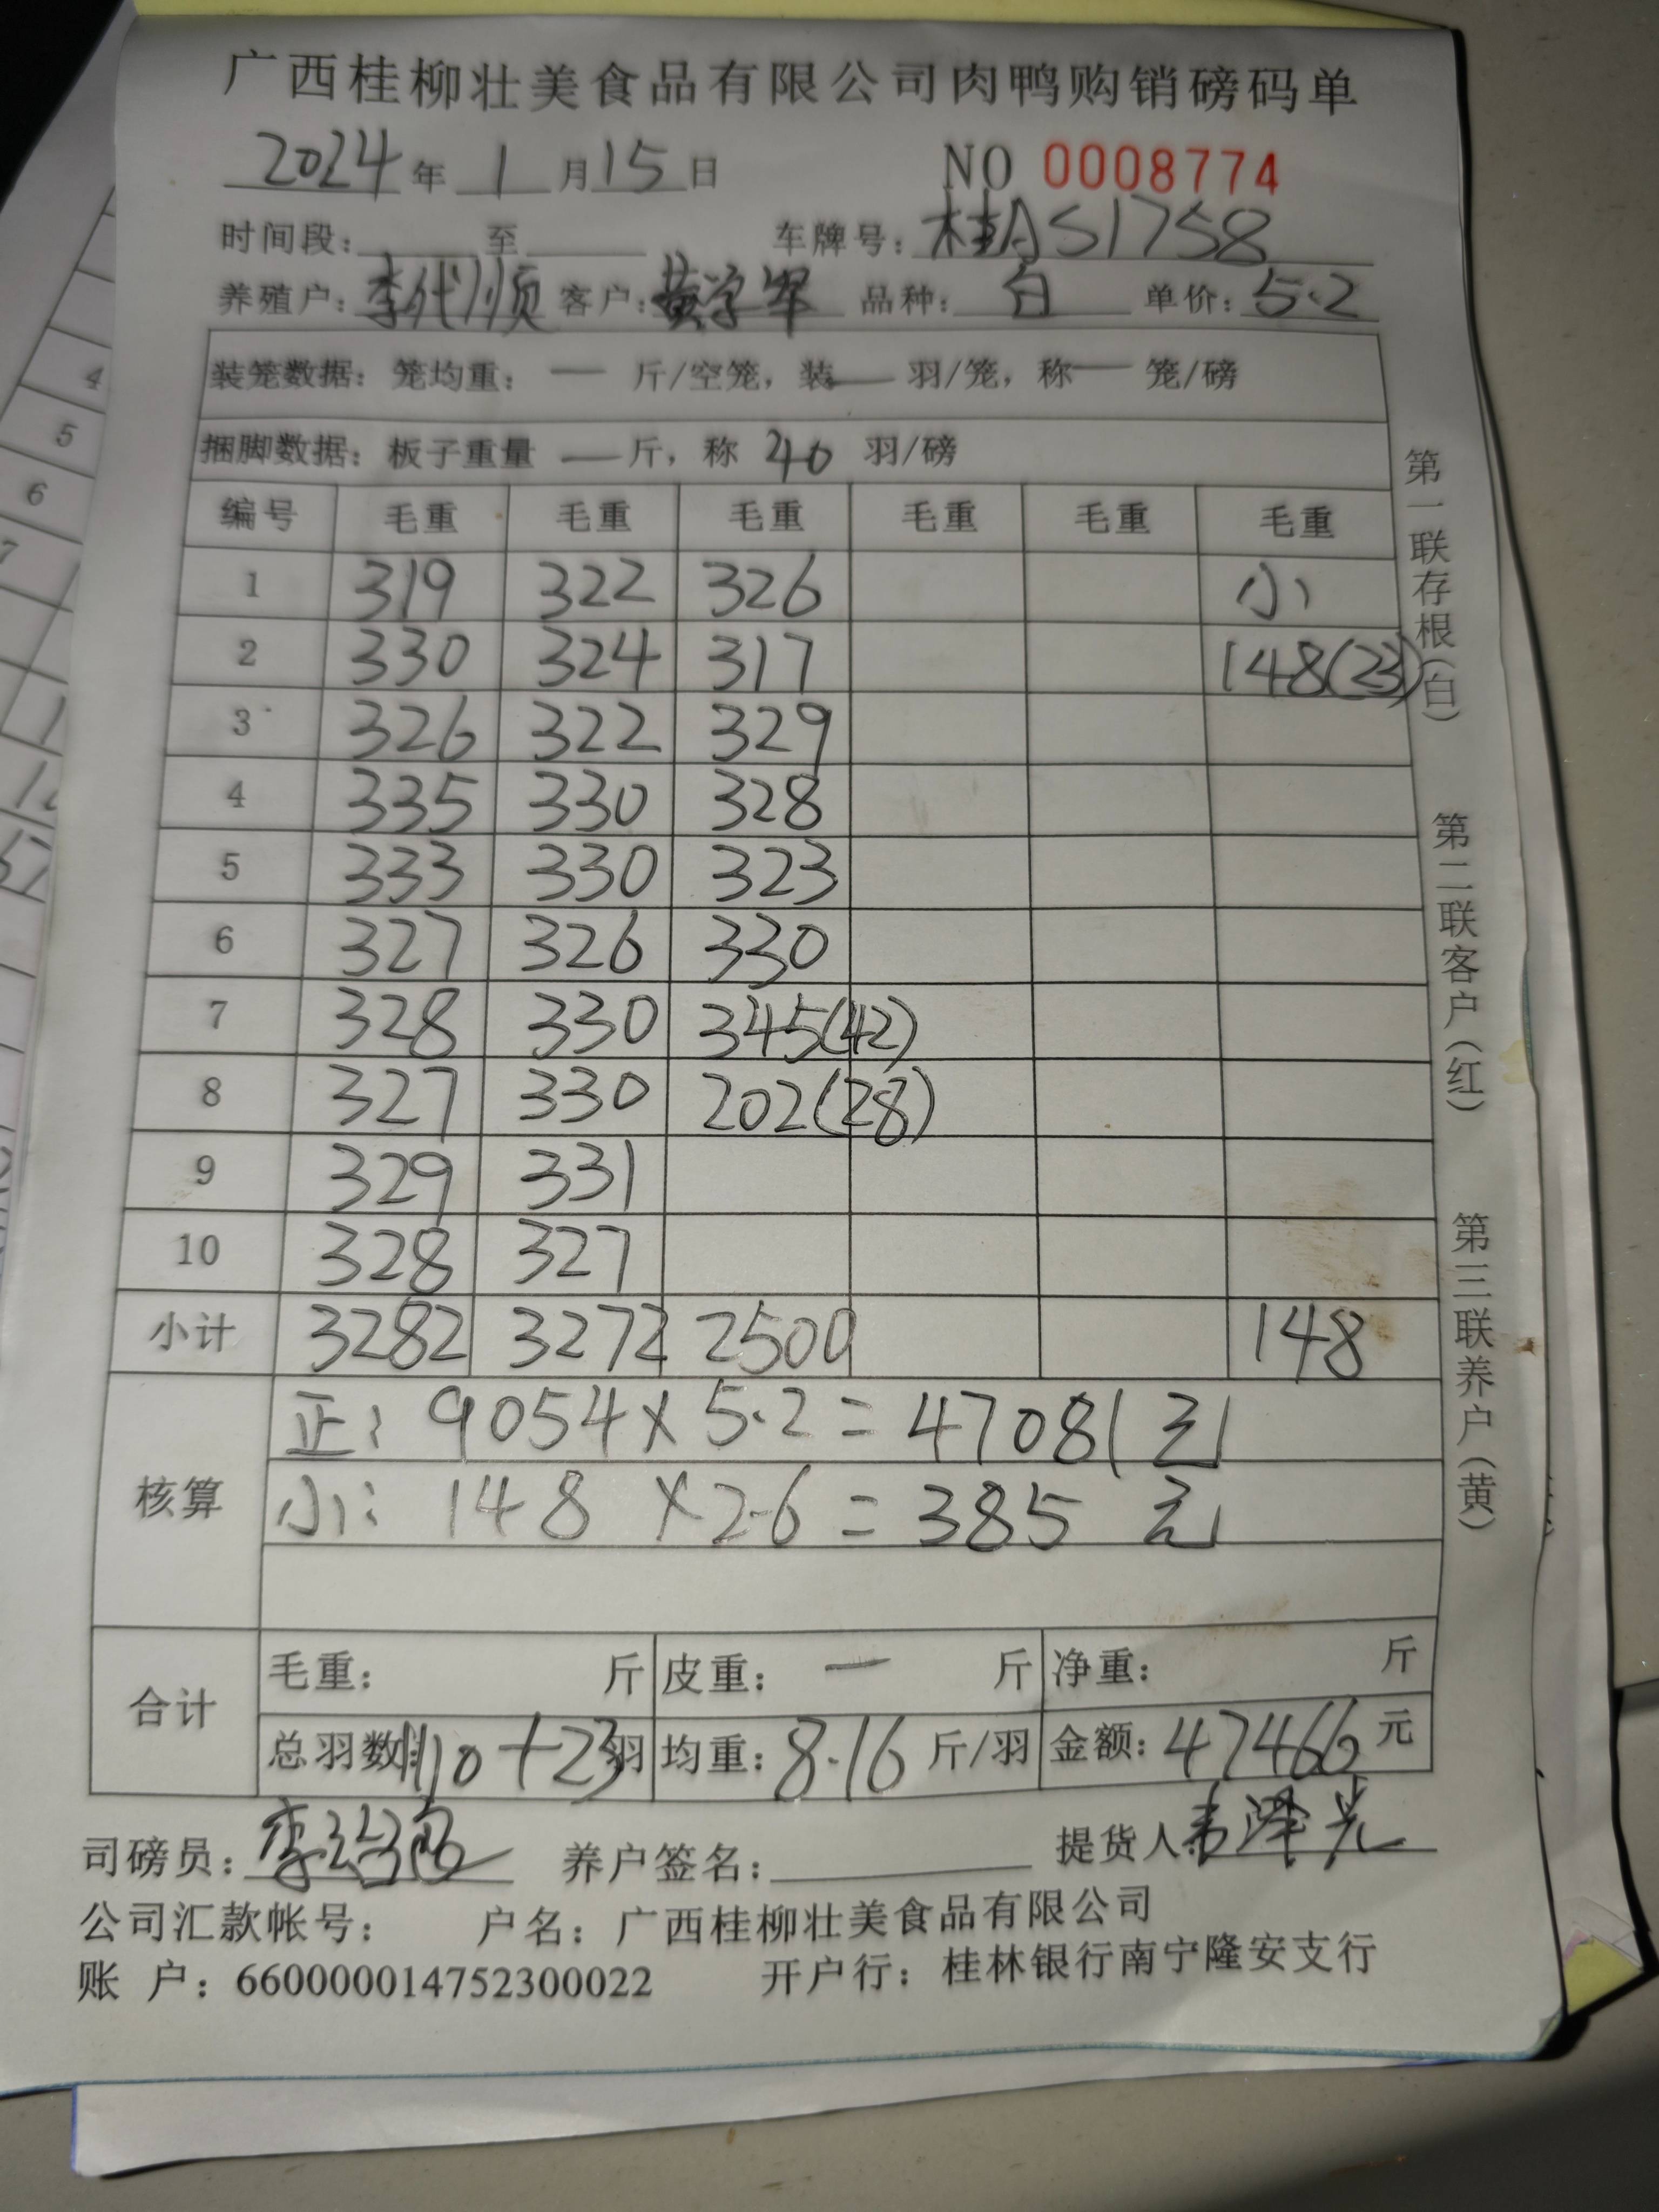 广西桂柳壮美食品有限公司肉鸭购销磅码单
2024年 1 月 15 日 NO 0008774
时间段: 至 车牌号: 桂AS1758
养殖户: 李代顺 客户: 黄学军 品种: 白 单价: 5.2
装笼数据: 笼均重: — 斤/空笼, 装 — 羽/笼, 称 — 笼/磅
捆脚数据: 板子重量 — 斤, 称 40 羽/磅
编号 毛重 毛重 毛重 毛重 毛重 毛重
1 319 322 326 小
2 330 324 317 148(23)
3 326 322 329
4 335 330 328
5 333 330 323
6 327 326 330
7 328 330 345(42)
8 327 330 202(28)
9 329 331
10 328 327
小计 3282 3272 2500 148
核算
正: 9054×5.2=47081元
小: 148 ×2.6=385 元
合计
毛重: 斤 皮重: — 斤 净重: 斤
总羽数: 1110+23羽 均重: 8.16 斤/羽 金额: 47466 元
司磅员: 李 养户签名: 提货人 韦泽光
公司汇款帐号: 户名: 广西桂柳壮美食品有限公司
账 户: 660000014752300022 开户行: 桂林银行南宁隆安支行
第一联存根(白)
第二联客户(红)
第三联养户(黄)
4
5
6
7